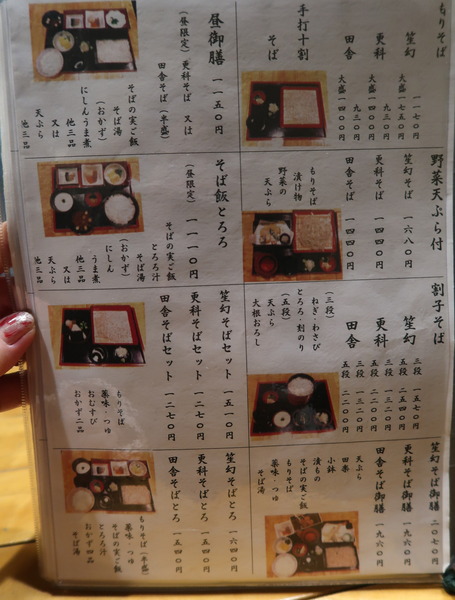 もりそば
笙幻 一一七〇円
大盛 一七五〇円
更科 九三〇円
大盛 一四〇〇円
田舎 九三〇円
大盛 一四〇〇円
手打十割
そば
野菜天ぷら付
笙幻そば 一六八〇円
更科そば 一四四〇円
田舎そば 一四四〇円
もりそば
漬け物
野菜の
天ぷら
割子そば
笙幻 三段 一五七〇円
五段 二五四〇円
更科 三段 一三二〇円
五段 二二〇〇円
田舎 三段 一三二〇円
五段 二二〇〇円
(三段)
ねぎ・わさび
とろろ・刻のり
(五段)
天ぷら
大根おろし
笙幻そば御膳 二〇七〇円
更科そば御膳 一九六〇円
田舎そば御膳 一九六〇円
天ぷら
田楽
小鉢
漬もの
そばの実ご飯
もりそば
薬味・つゆ
そば湯
昼御膳 一一五〇円
(昼限定)
更科そば 又は
田舎そば(半盛)
そばの実ご飯
そば湯
(おかず)
にしんうま煮
又は
天ぷら
他三品
そば飯とろろ
(昼限定) 一一一〇円
そばの実ご飯
とろろ汁
そば湯
(おかず)
にしん
うま煮
又は
天ぷら
他三品
笙幻そばセット 一五一〇円
更科そばセット 一二七〇円
田舎そばセット 一二七〇円
もりそば
薬味・つゆ
おむすび
おかず二品
笙幻そばとろ 一六四〇円
更科そばとろ 一五四〇円
田舎そばとろ 一五四〇円
もりそば(半盛)
薬味・つゆ
そばの実ご飯
とろろ汁
おかず四品
そば湯